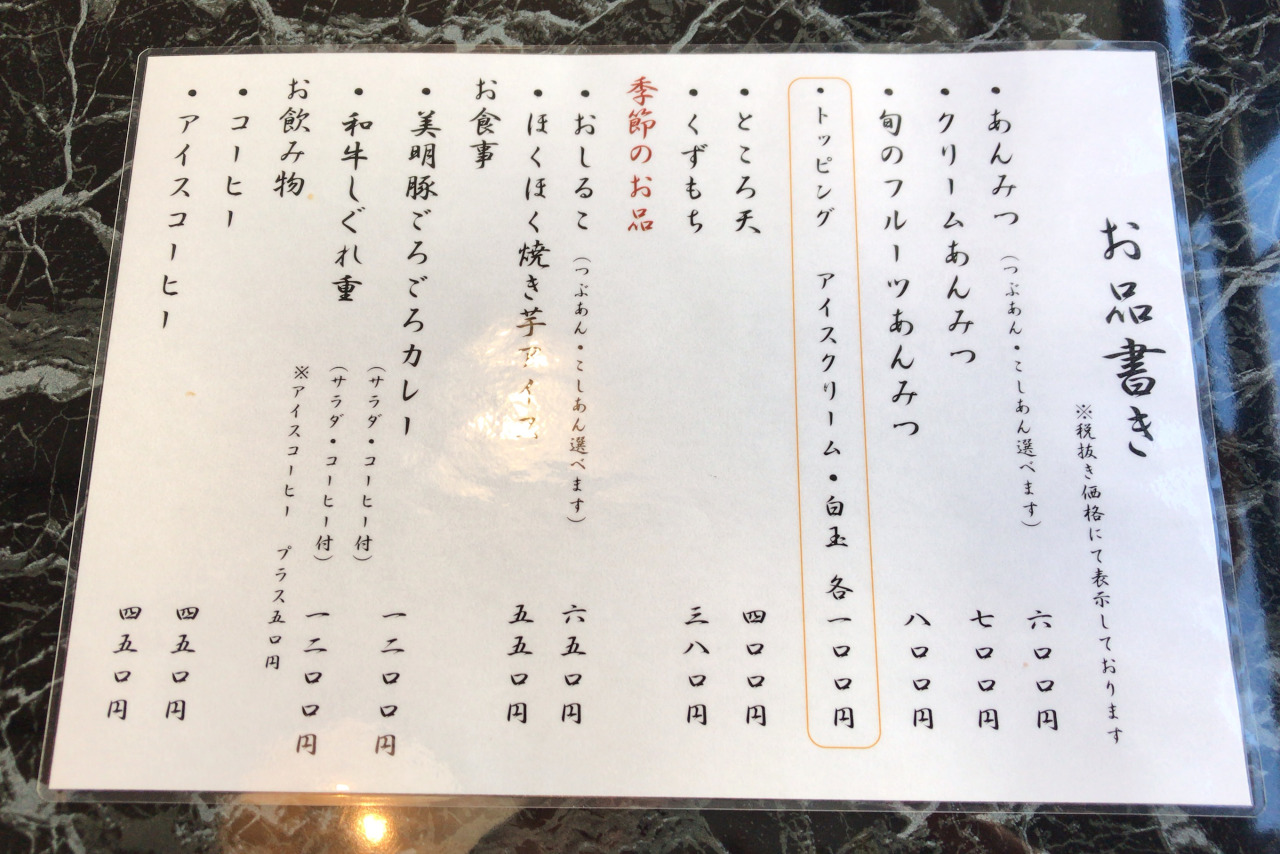 お品書き
※税抜き価格にて表示しております
・あんみつ（つぶあん・こしあん選べます） 六〇〇円
・クリームあんみつ 七〇〇円
・旬のフルーツあんみつ 八〇〇円
・トッピング アイスクリーム・白玉 各一〇〇円
・ところ天 四〇〇円
・くずもち 三八〇円
季節のお品
・おしるこ（つぶあん・こしあん選べます） 六五〇円
・ほくほく焼き芋アイス 五五〇円
お食事
・美明豚ごろごろカレー（サラダ・コーヒー付） 一二〇〇円
・和牛しぐれ重（サラダ・コーヒー付） 一二〇〇円
※アイスコーヒー プラス五〇円
お飲み物
・コーヒー 四五〇円
・アイスコーヒー 四五〇円